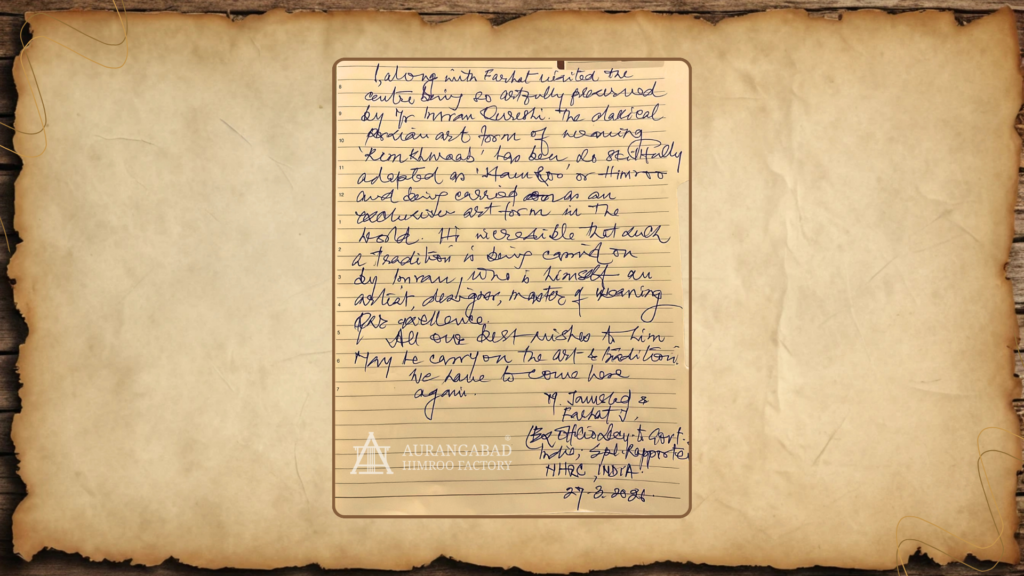 I, along with Farhat visited the
centre being so artfully preserved
by Mr Imran Qureshi. The classical
Persian art form of weaving
'Kimkhwaab' has been so skillfully
adopted as 'Hamroo' or Himroo
and being carried on as an
exclusive art form in the
world. It's incredible that such
a tradition is being carried on
by Imran, who is himself an
artist, designer, master of weaving
par excellence.
All our best wishes to him
May he carry on the art & tradition.
We have to come here
again.
M. Jamshed &
Farhat J,
to Govt.
India, Spl. Rapporteur
NHRC, INDIA.
AURANGABAD
HIMROO FACTORY
8
9
10
11
12
1
2
3
4
5
6
7